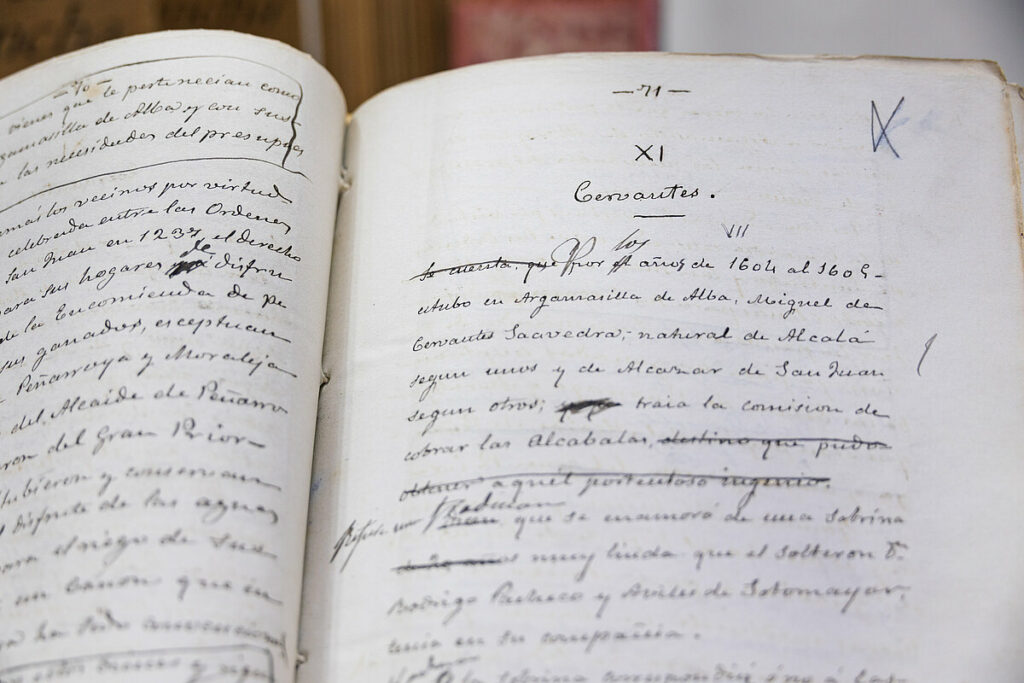 -70-
vienes que le pertenecian como
gamasilla de Alba, y con sus
a las necesidades del presupues
más los vecinos por virtud
celebrada entre las Ordenes
San Juan en 1237, el derecho
para sus hogares de disfru
de la Encomienda de Pe
sus ganados, esceptuan
Peñarroya y Moraleja
del Alcaide de Peñarro
ron del Gran Prior
tubieron y conservan
disfrute de las aguas
para el riego de sus
un canon que un
ha sido
-71-
XI
Cervantes.
VII
los
Se cuenta, que Por el años de 1604 al 1605-
estubo en Argamasilla de Alba, Miguel de
Cervantes Saavedra; natural de Alcalá
segun unos y de Alcazar de San Juan
segun otros; traia la comision de
cobrar las Alcabalas, destino que pudo
obtener aquel portentoso ingenio.
que se enamoró de una sobrina
muy linda que el solteron Dn.
Rodrigo Pacheco y Aviles de Sotomayor,
tenia en su compañia.
la sobrina